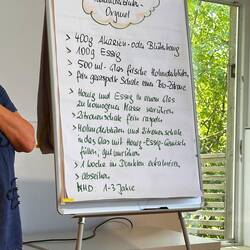 Holunderblüten-
Oxymel
> 400g Akazien- oder Blütenhonig
> 100g Essig
> 500 ml-Glas frische Holunderblüten
fein geraspelte Schale einer Bio-Zitrone
> Honig und Essig in einem Glas
zu homogener Masse verrühren
> Zitronenschale fein raspeln
> Holunderblüten und Zitronenschale
in das Glas mit Honig-Essig-Gemisch
füllen, gut umrühren
> 1 Woche im Dunklen extrahieren,
> abseihen
MHD: 1-3 Jahre